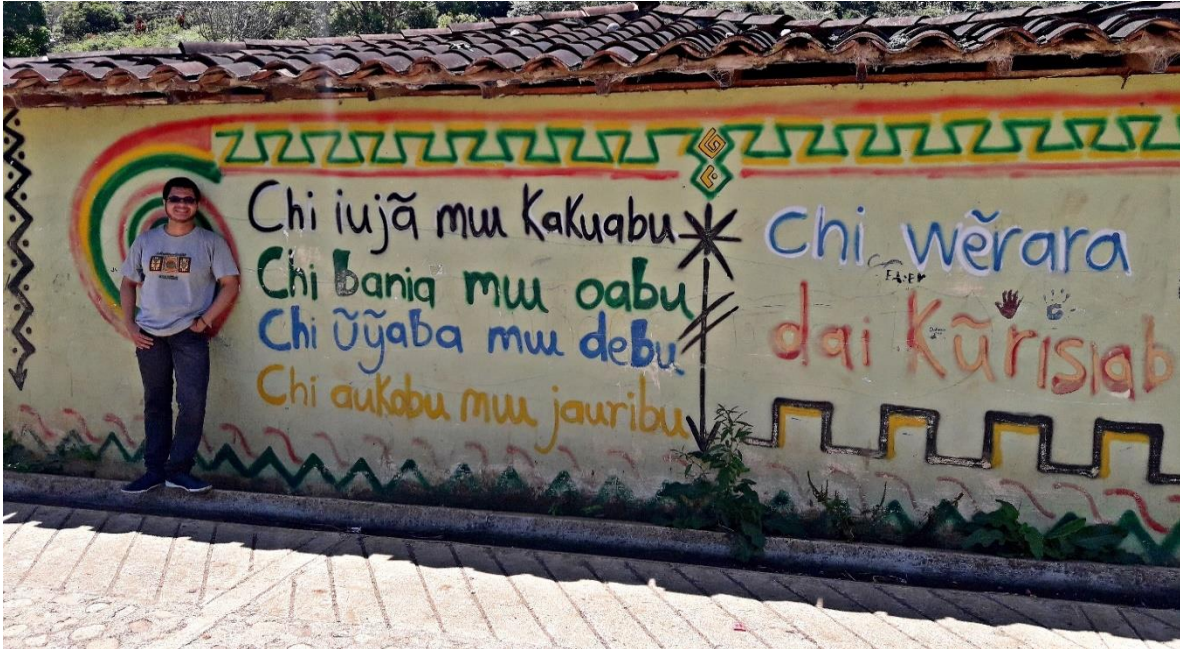 Chi iujã muu Kakuabu
Chi bania muu oabu
Chi Ũỹaba muu debu
Chi aukobu muu jauribu
Chi wẽrara
dai Kũrisiab